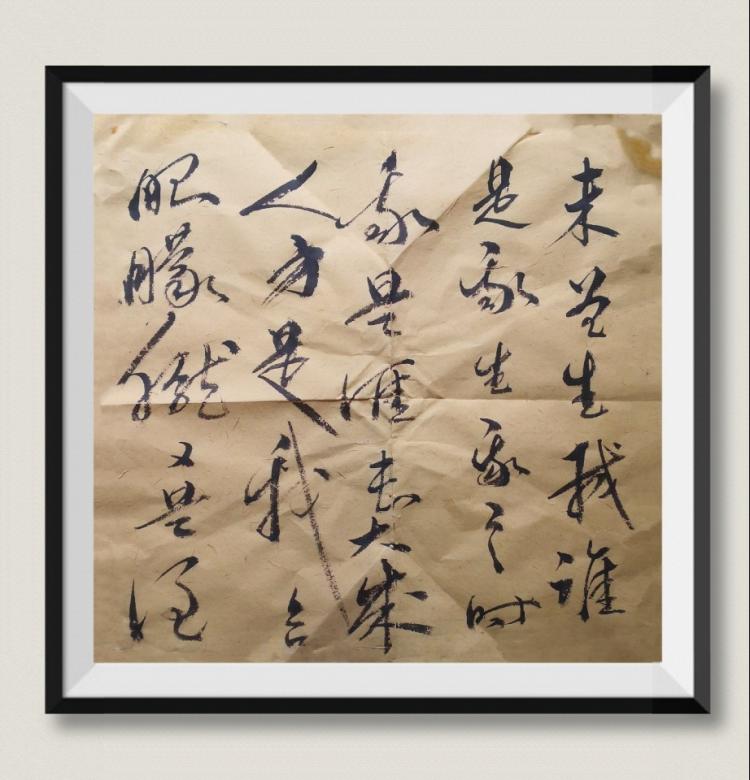 未曾生我谁
是我生我之时
我是谁长大成
人方是我合
眼朦朧又是谁